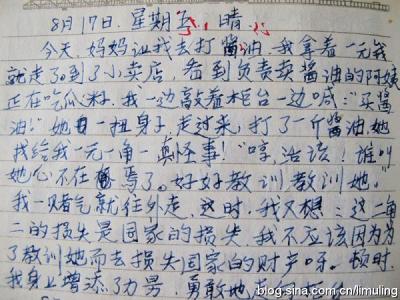 8月17日.星期五.晴.
今天,妈妈让我去打酱油,我拿着一元钱
就走了。到了小卖店,看到负责卖酱油的阿姨
正在吃瓜籽,我一边敲着柜台一边喊:“买酱
油!”她一扭身子,走过来,打了一斤酱油,她
找给我一元一角一真怪事!“哼,活该!谁叫
她心不在焉了。好好教训教训她。”
我一赌气就往外走,这时,我又想:这一角
二的损失是国家的损失,我不应该因为为
了教训她而去损失国家的财产呀。顿时,
我身上增添了力男,勇敢地
blog.sina.com.cn/limuling